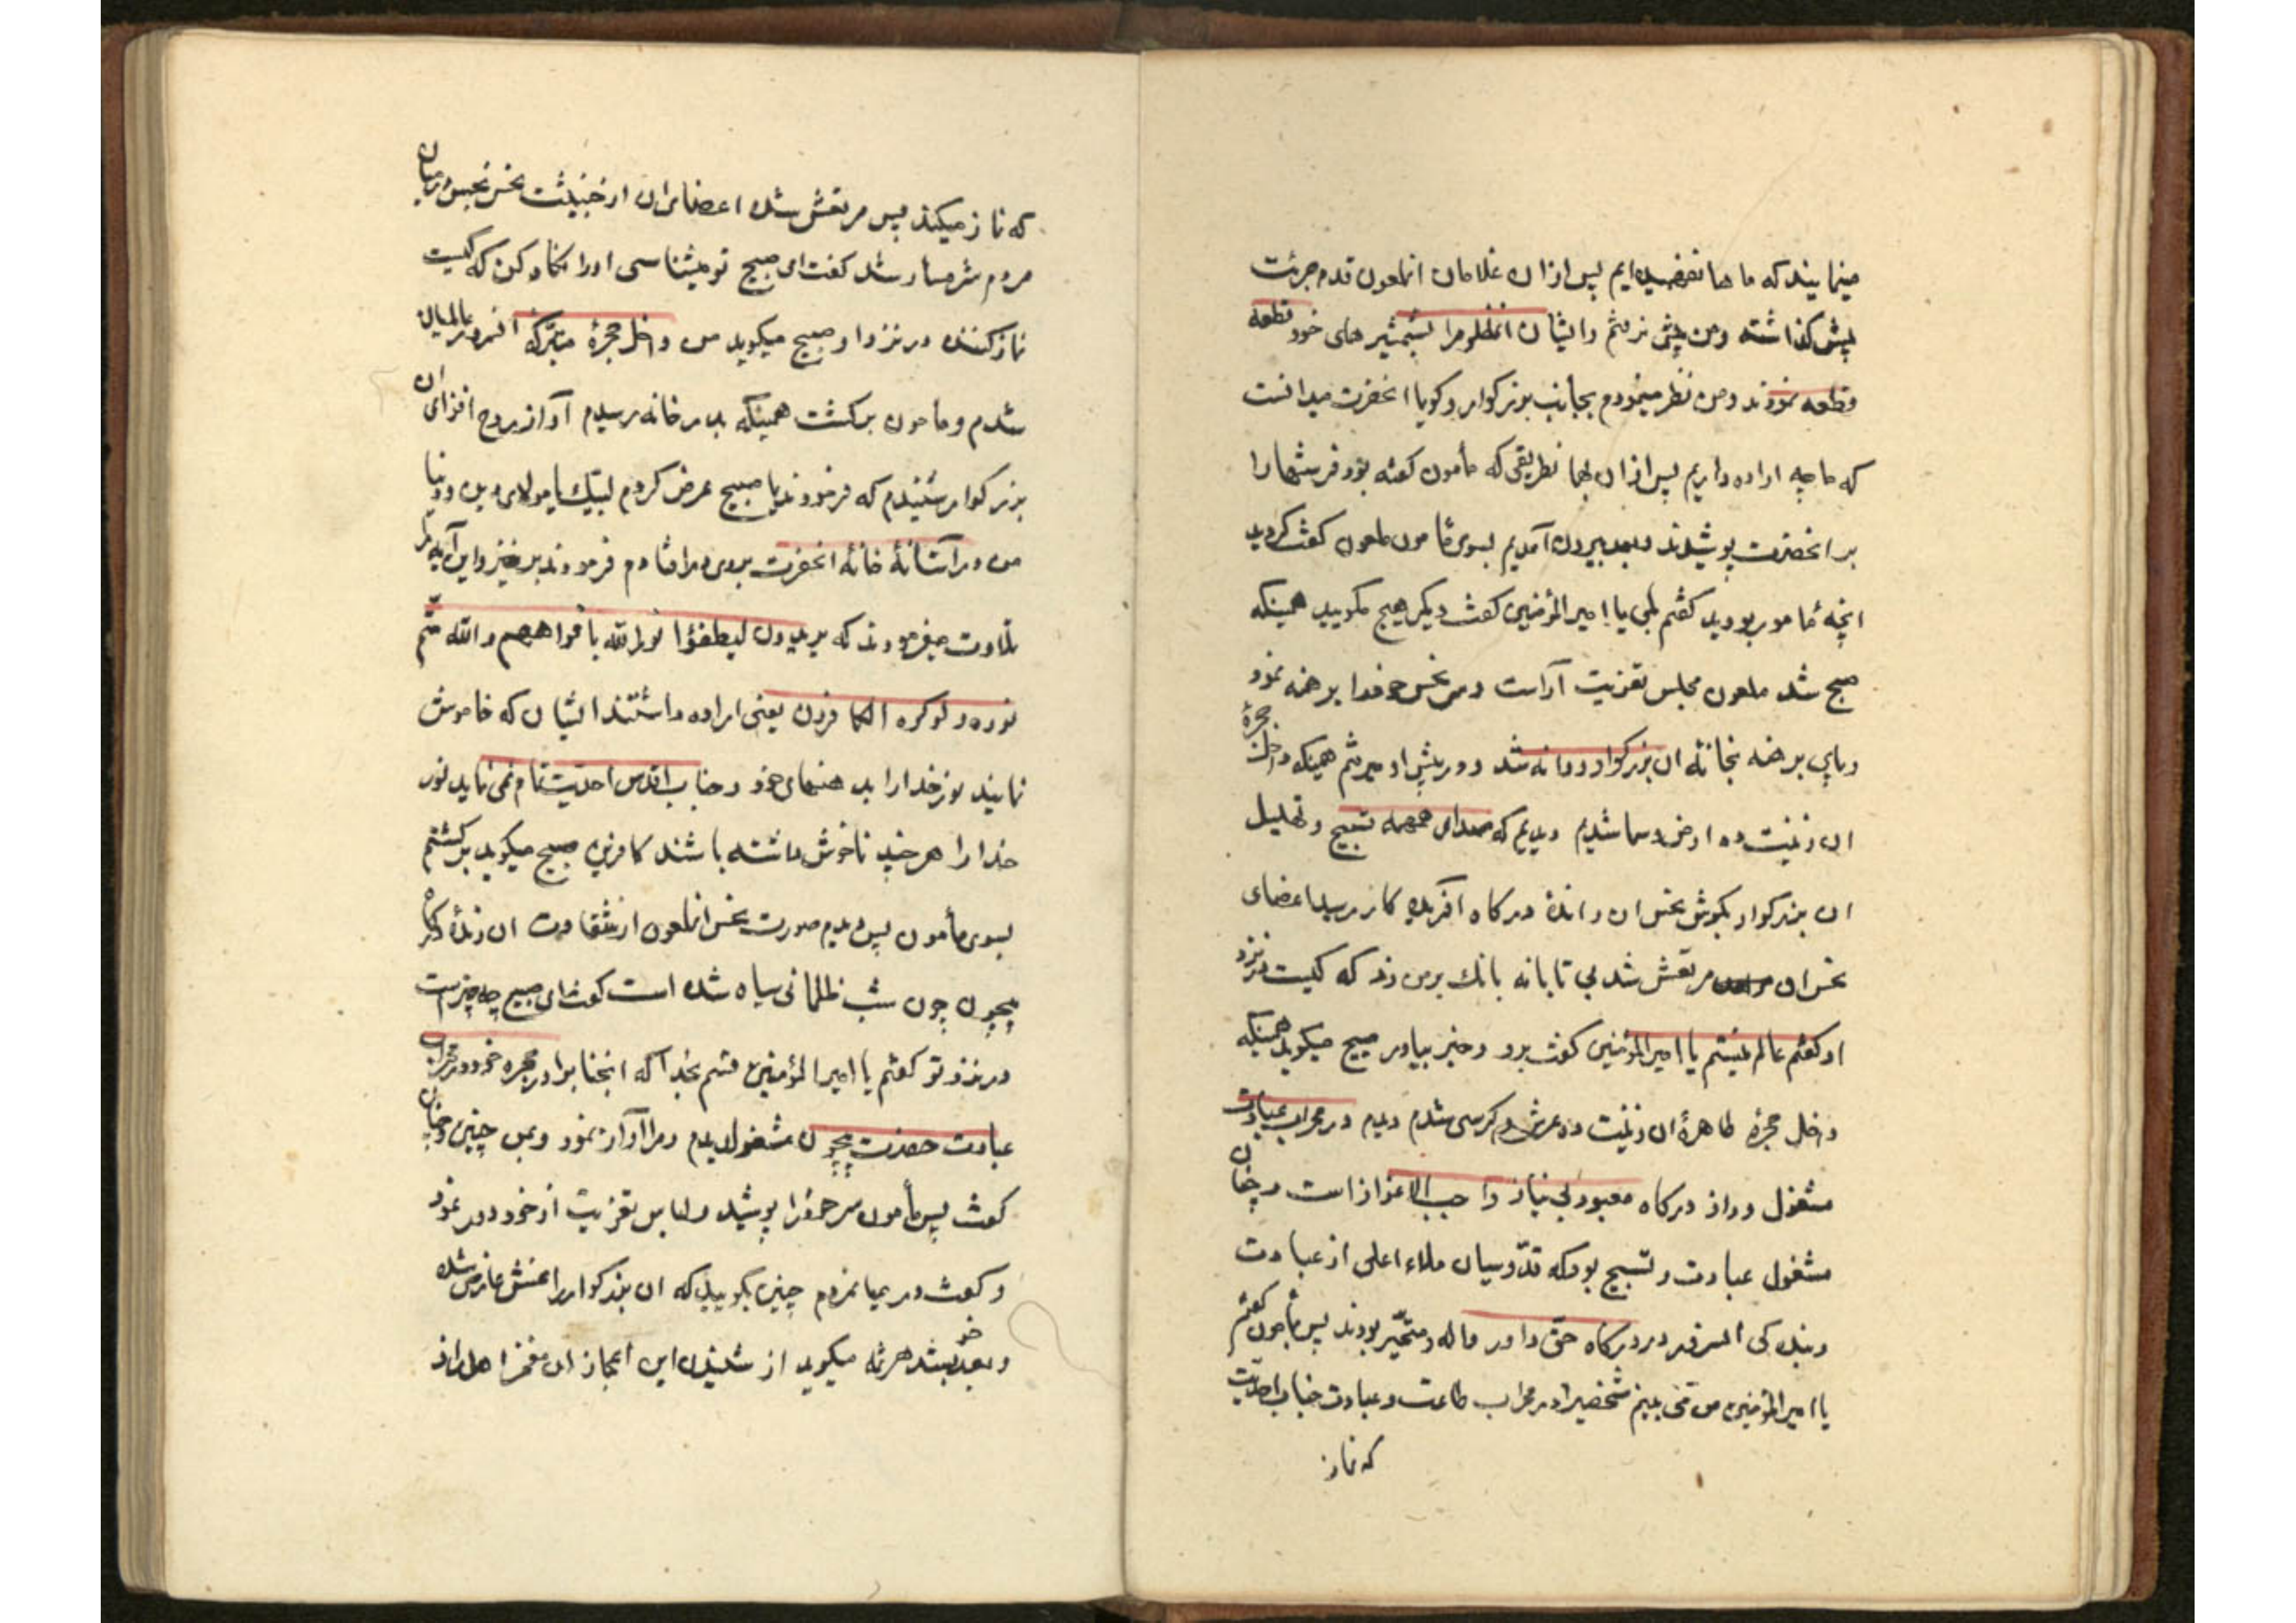 مینمایند که ما ها نفهمیده‌ایم پس از ان غلامان انملعون قدم جرئت
پیش گذاشته و من پیش نرفتم و ایشان انمظلومرا بشمشیر های خود قطعه
قطعه نمودند و من نظر مینمودم بجانب بزرکوار و کویا انحضرت میدانست
که ما چه اراده داریم پس از ان بهمان طریقی که مأمون کفته بود فرشها را
بر انحضرت پوشیدند و بعد بیرون آمدیم بسوی مأمون ملعون کفت کردید
انچه مأمور بودید کفتم بلی یا امیرالمؤمنین کفت دیکر هیچ مکویید همینکه
صبح شد ملعون مجلس تعزیت آراست و سر نحس خود را برهنه نمود
و پای برهنه بخانه ان بزرکوار روانه شد و در پیش او میرفتم همینکه داخل حجرهٔ
ان زینت ده ارض و سما شدیم دیدیم که صدای همهمه تسبیح و تهلیل
ان بزرکوار بکوش نحس ان راندهٔ درکاه آفریدکار رسید اعضای
نحس ان مرتعش شد بی تابانه بانك بر من زد که کیست در نزد
او کفتم عالم نیستم یا امیرالمؤمنین کفت برو و خبر بیاور صبیح میکوید همینکه
داخل حجرهٔ طاهرهٔ ان زینت ده عرش و کرسی شدم دیدم در محراب عبادت
مشغول و راز درکاه معبود بی نیاز واجب الاعزاز است و چنان
مشغول عبادت و تسبیح بود که قدّوسیان ملاء اعلی از عبادت
و بندکی السرور در درکاه حقّ داور واله و متحیّر بودند پس بمأمون کفتم
یا امیرالمؤمنین من می بینم شخصیرا در محراب طاعت و عبادت جناب احدیّت
که نماز
که نماز میکند پس مرتعش شد اعضای ان ارخبیثت نحس نجس و در میان
مردم شرمسار شد کفت ای صبیح تو میشناسی او را نکاه کن که کیست
نماز کننده در نزد او صبیح میکوید من داخل حجرهٔ متبرّکه انسرور عالمیان
شدم و مأمون برکشت همینکه بدر خانه رسیدم آواز روح افزای ان
بزرکوار شنیدم که فرمودند یا صبیح عرض کردم لبّیك یا مولای دین و دنیا
من در آستانهٔ خانهٔ انحضرت بروی در افتادم فرمودند برخیز و این آیه را
تلاوت میفرمودند که یریدون لیطفؤا نورالله بافواههم والله متمّ
نوره ولوکره الکافرون یعنی اراده داشتند ایشان که خاموش
نمایند نور خدا را بدهنهای خود و جناب اقدس احدیّت تمام می نماید نور
خدا را هر چند ناخوش داشته باشند کافرین صبیح میکوید برکشتم
بسوی مأمون پس دیدم صورت نحس انملعون از شقاوت ان زندهٔ درکاه
بیچون چون شب ظلمانی سیاه شده است کفت ای صبیح چه چیز است
در نزد تو کفتم یا امیرالمؤمنین قسم بخدا که انجناب را در حجره خود و در محراب
عبادت حضرت بیچون مشغول دیدم و مرا آواز نمود و بمن چنین و چنان
کفت پس مأمون سر خود را پوشید و لباس تعزیت از خود دور نمود
و کفت در میان مردم چنین بکویید که ان بزرکوار را غش عارض شده
و بعد بهتر شد هرثمه میکوید از شنیدن این اعجاز ان مفخر اهل راز